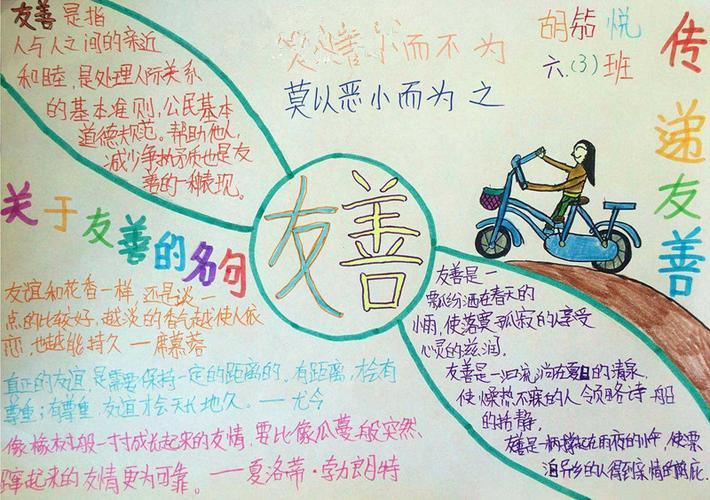 友善是指
人与人之间的亲近
和睦，是处理人际关系
的基本准则，公民基本
道德规范。帮助他人，
减少争执矛质也是友
善的一种表现。
善小而不为
莫以恶小而为之
胡 悦
六.(3)班
传递友善
友善
关于友善的名句
友谊和花香一样，还是淡一
点的比较好，越淡的香气越使人依
恋，也越能持久—席慕蓉
真正的友谊是需要保持一定的距离的。有距离，才会有
尊重；有尊重，友谊才会天长地久。——尤今
像橡树般一寸寸成长起来的友情，要比像瓜蔓般突然
蹿起来的友情更为可靠。——夏洛蒂·勃朗特
友善是一
瓢纷洒在春天的
小雨，使落寞孤寂的享受
心灵的滋润。
友善是一汩流淌在夏日的清泉，
使燥热不寐的人领略诗一般
的恬静。
友善是一柄撑起在雨夜的小伞，使漂
泊异乡的人得到亲情的荫庇。